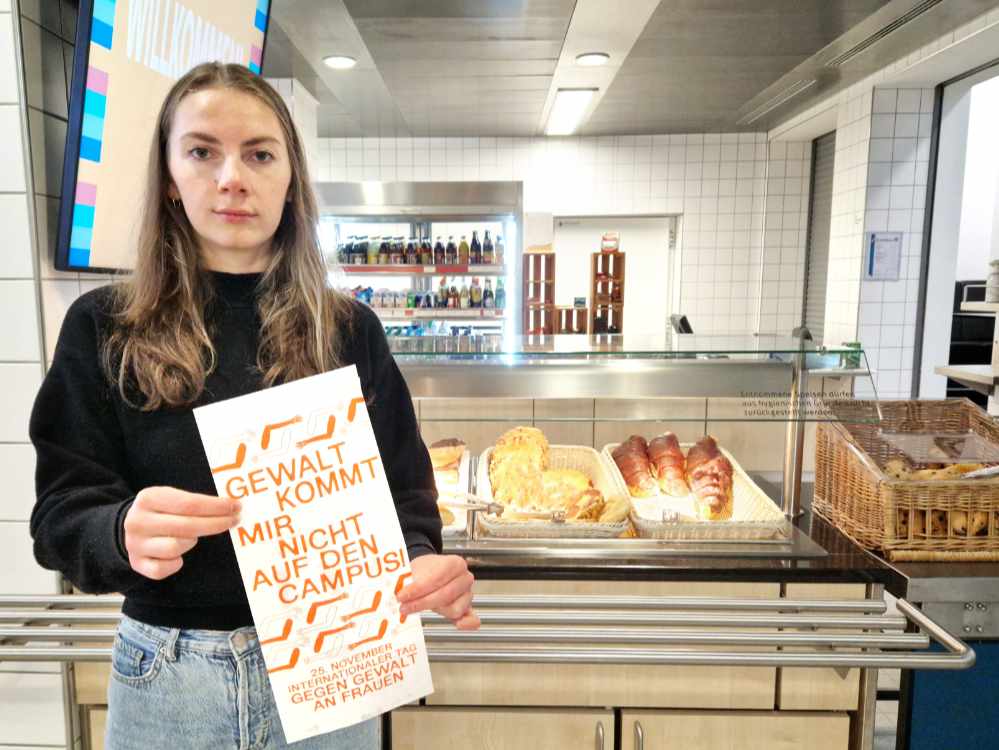 WILLKOMMEN
GEWALT
KOMMT
MIR
NICHT
AUF DEN
CAMPUS!
25. NOVEMBER
INTERNATIONALER TAG
GEGEN GEWALT
AN FRAUEN
Entnommene Speisen dürfen
aus hygienischen Gründen nicht
zurückgestellt werden